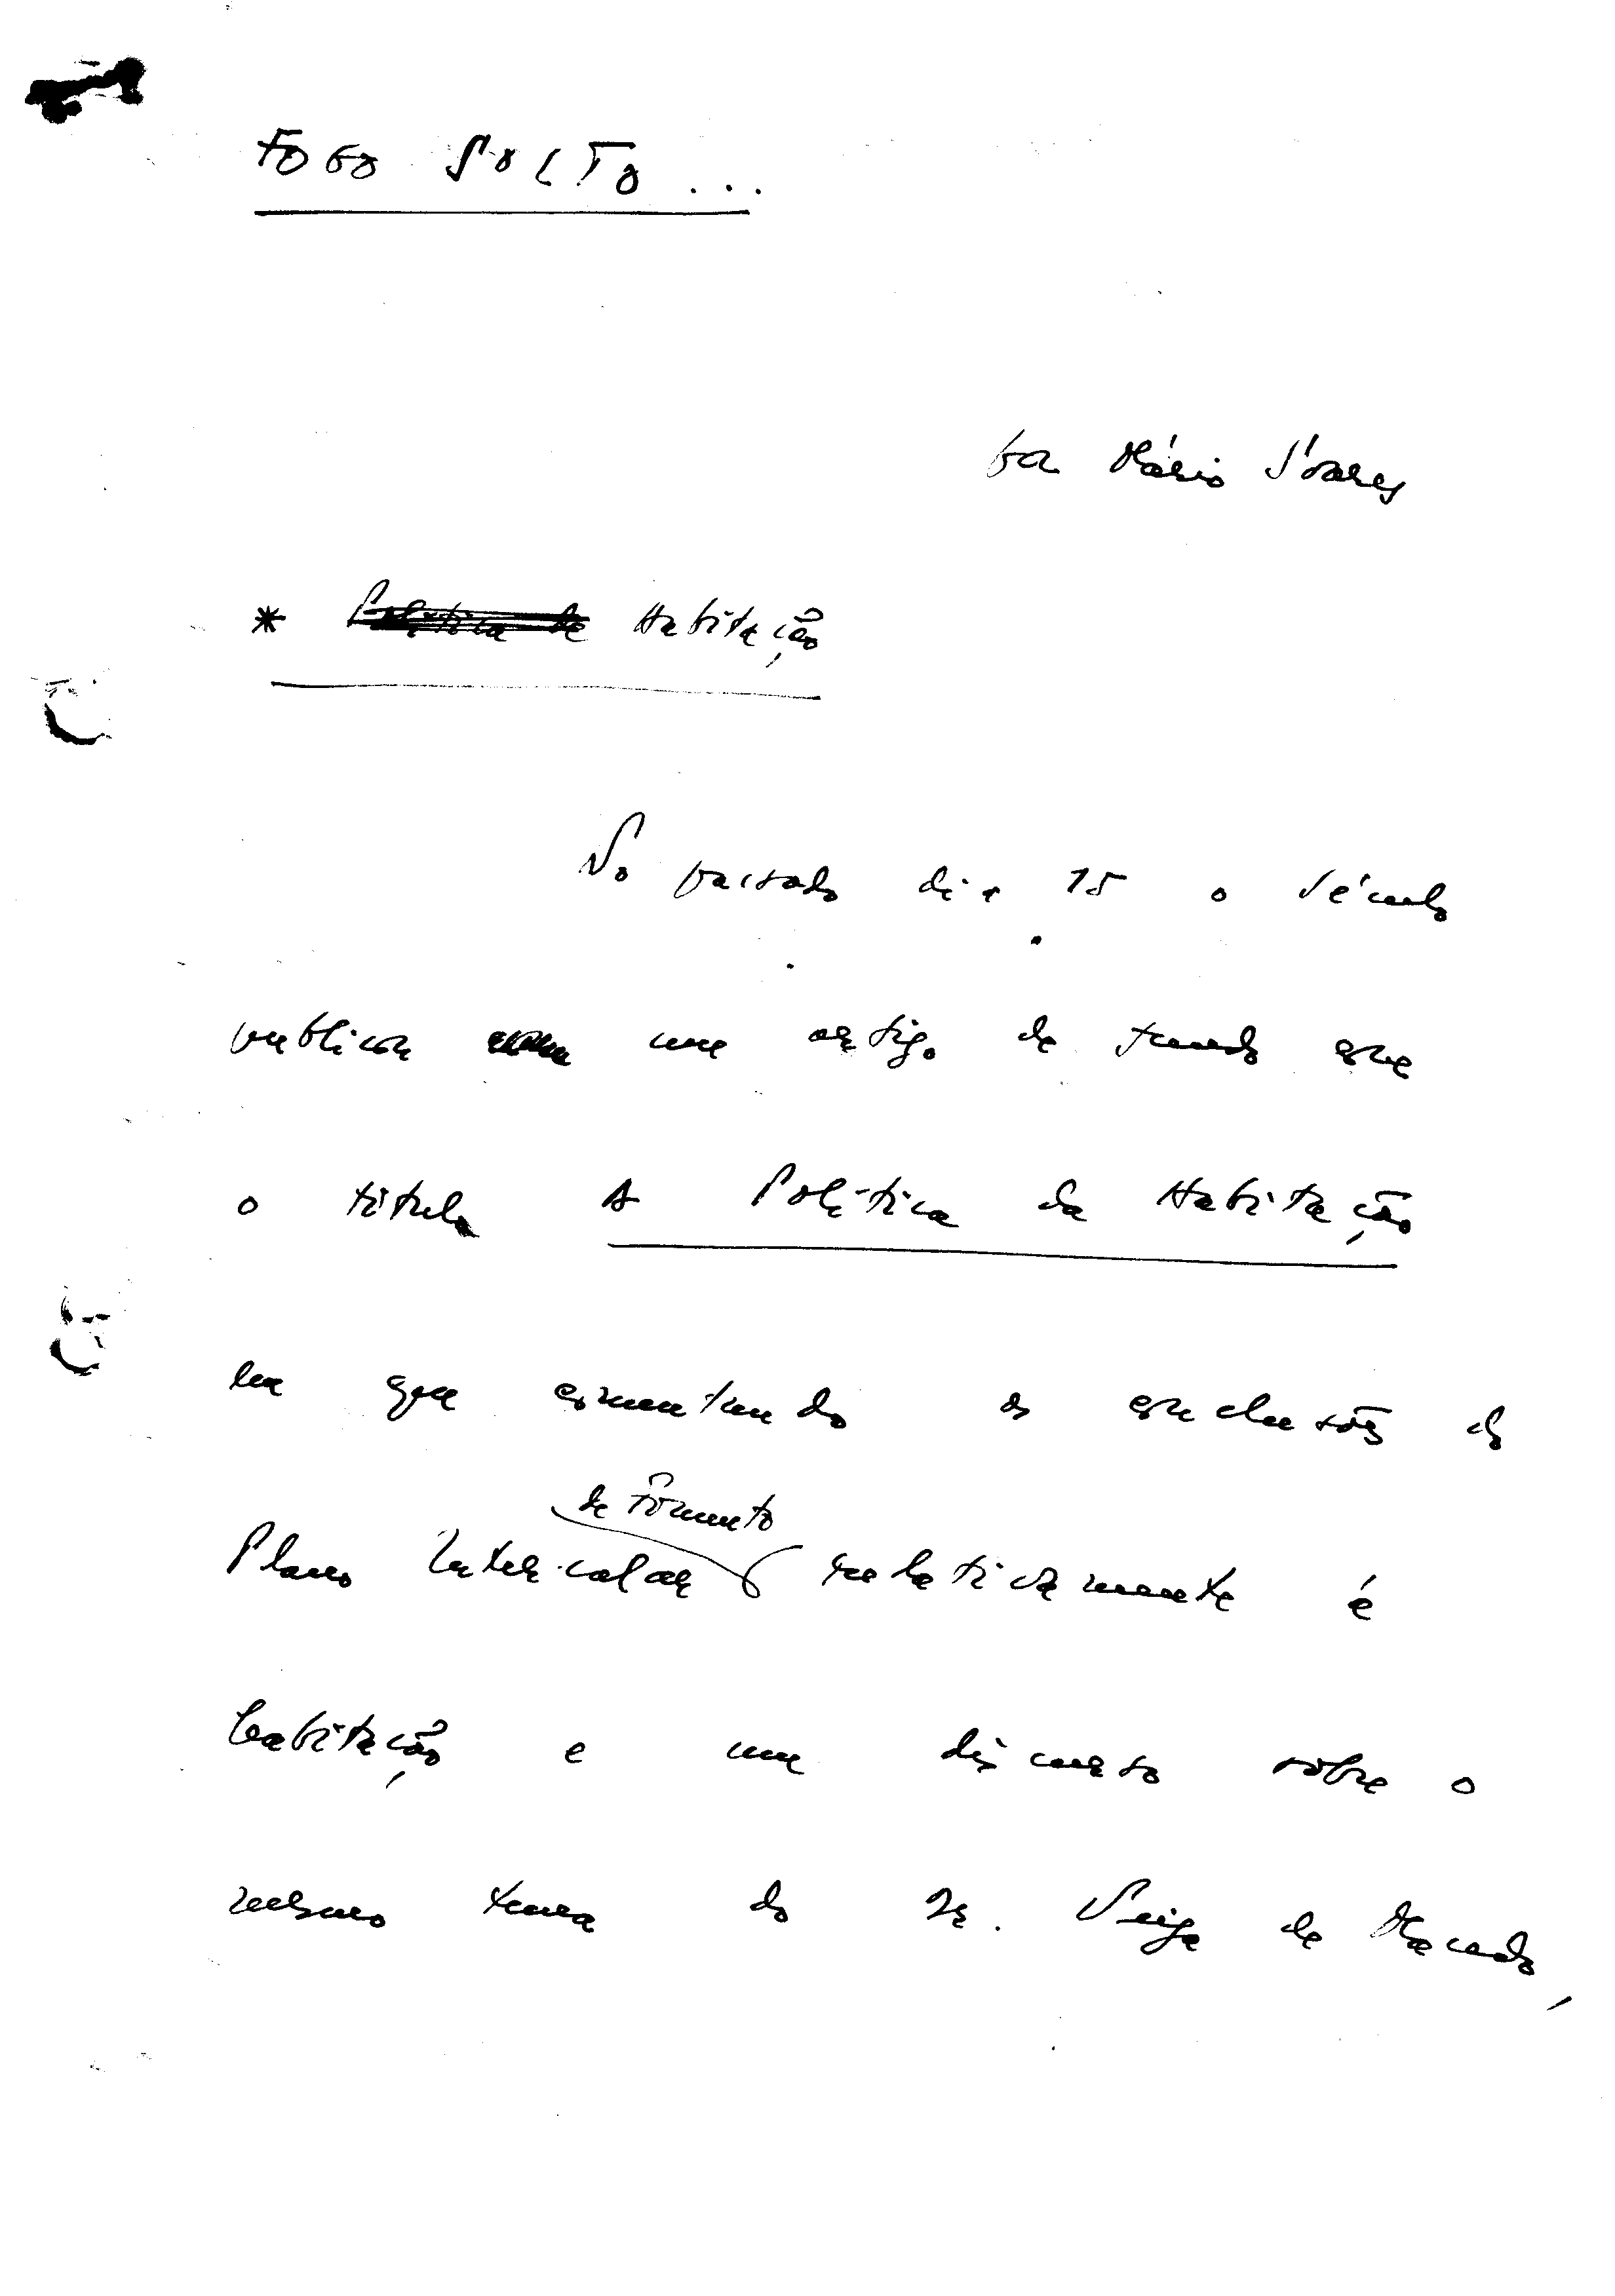 FOGO SOLTO...
por Mário Soares
* Política de Habitação
No passado dia 15 o Século
publicou um artigo de fundo com
o título A Política da Habitação
em que comentando as conclusões do
de Fomento
Plano Intercalar relativamente é
habitação e um discurso sobre o
mesmo tema do Dr. Veiga de Macedo,